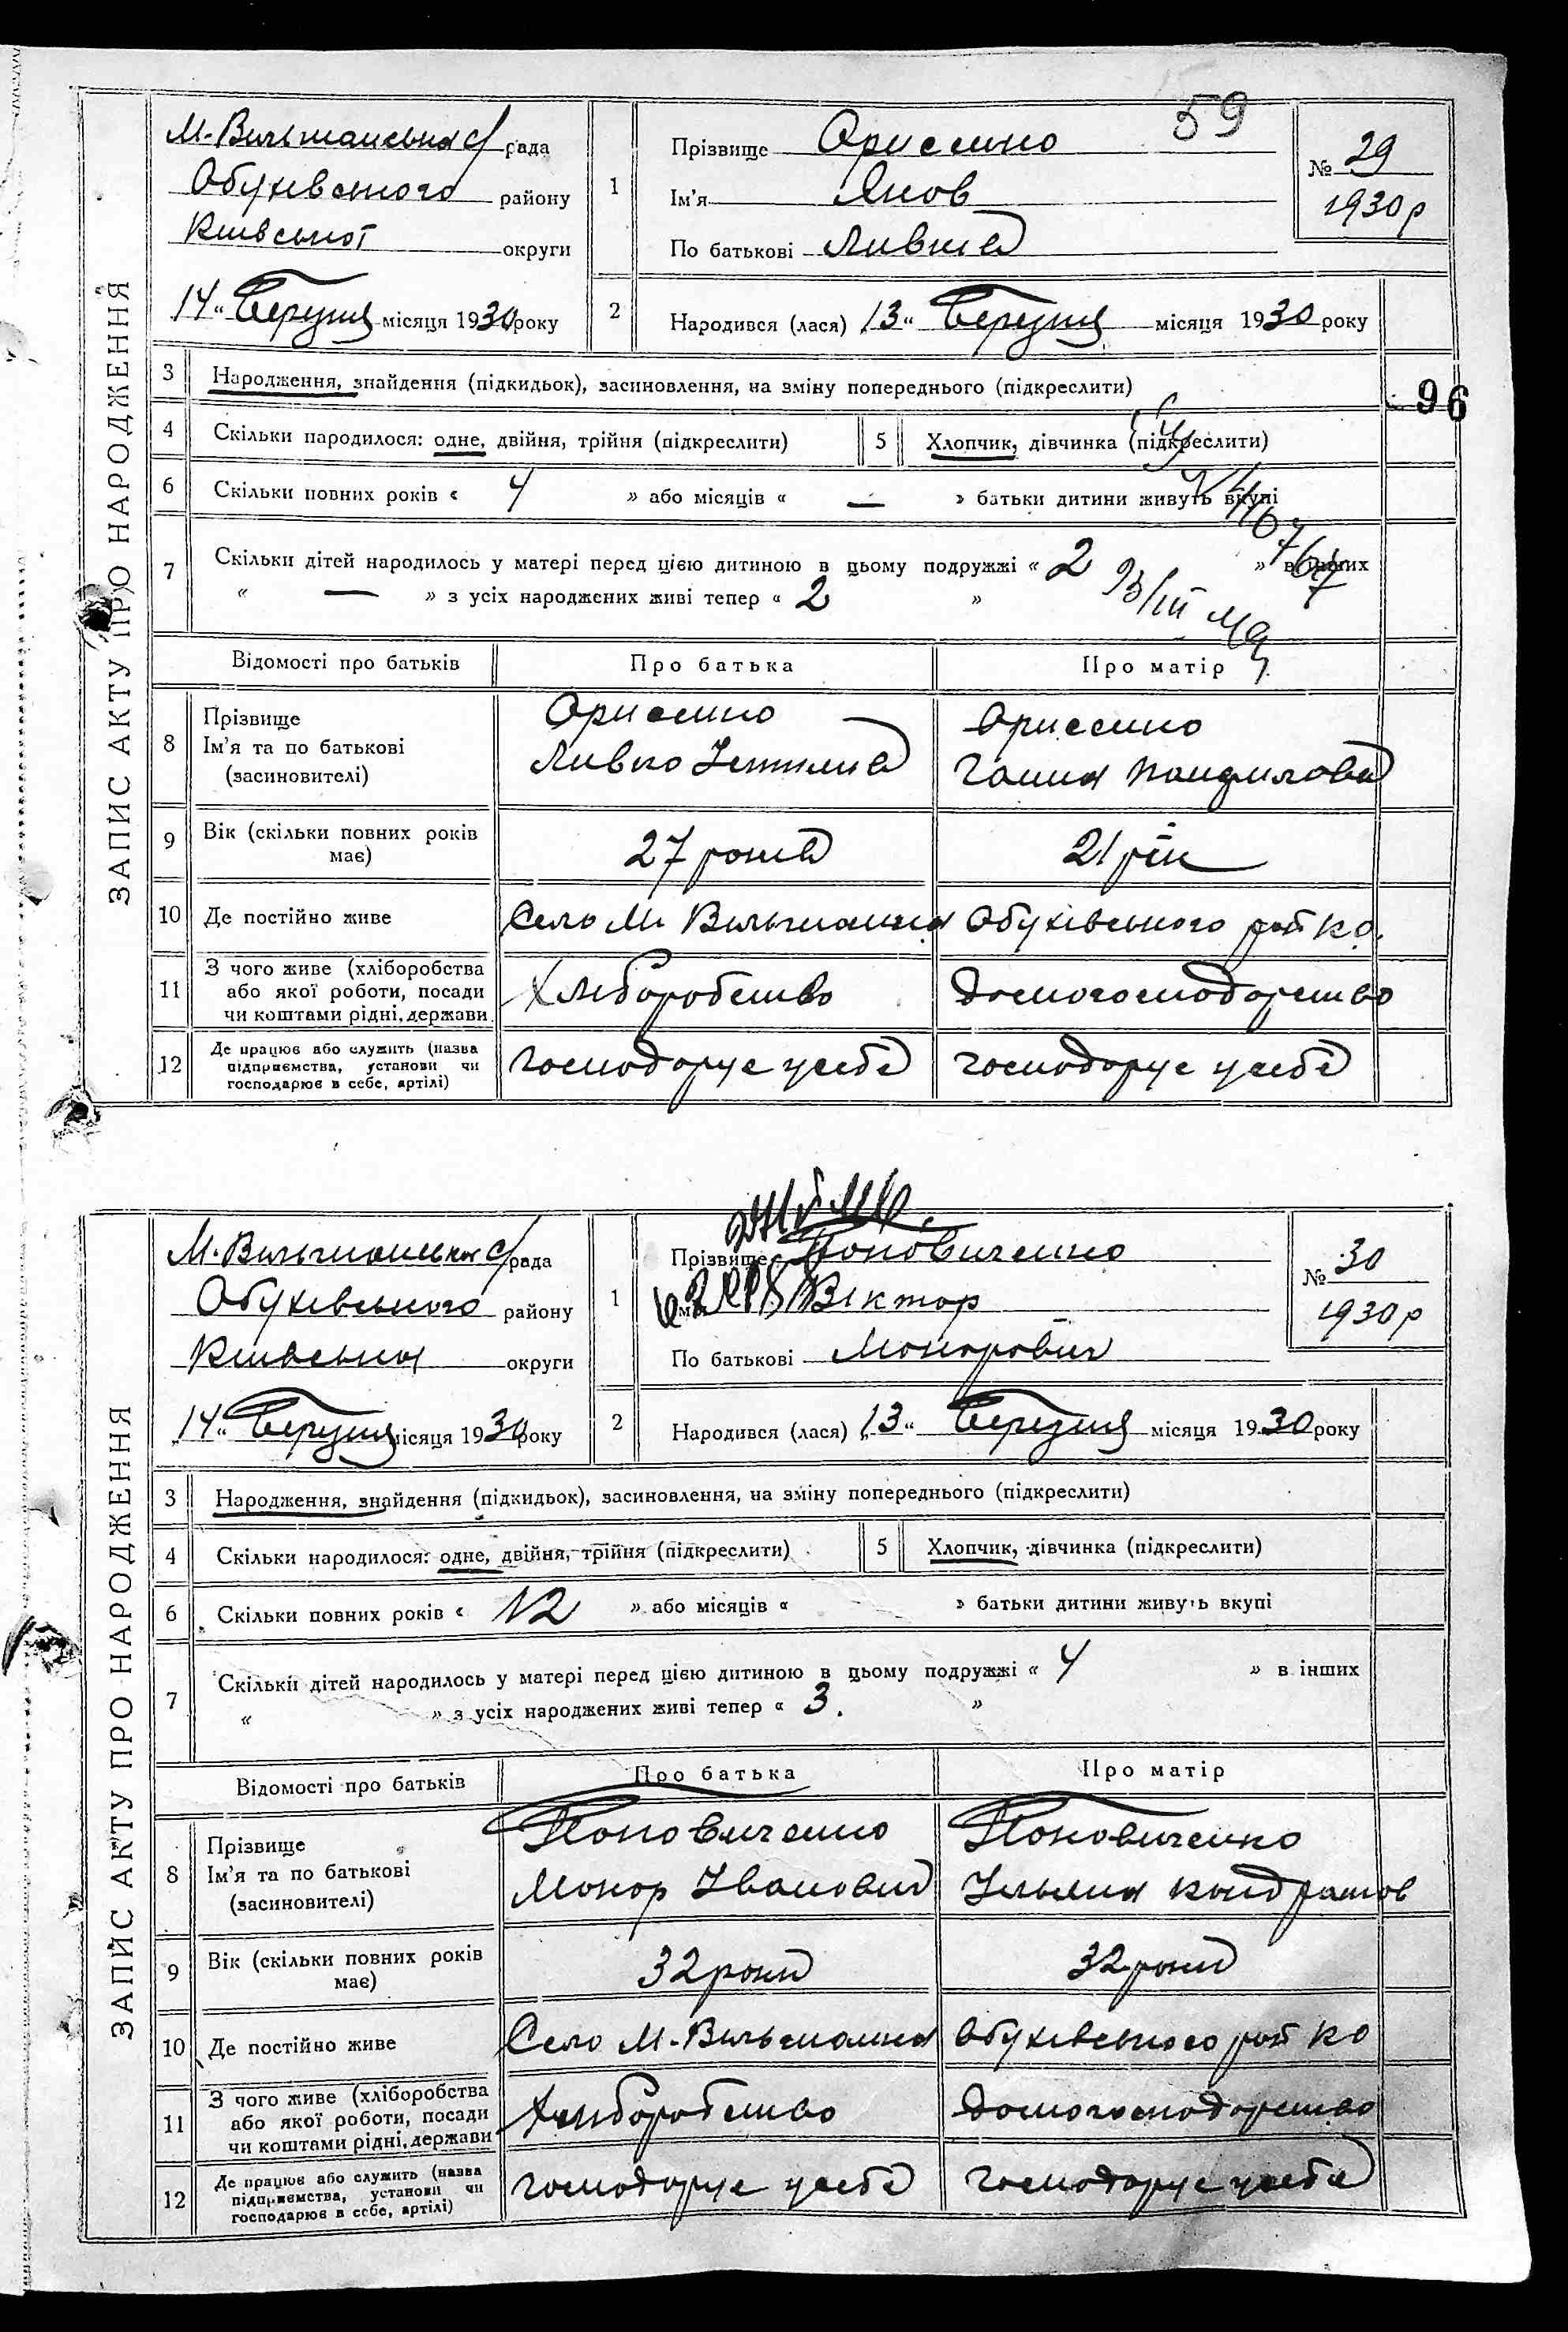 59
96
ЗАПИС АКТУ ПРО НАРОДЖЕННЯ
М. Вільшанська с/рада
Обухівського району
Київської округи
14 „ Березня місяця 1930 року
1 Прізвище Орисенко
Ім'я Яков
По батькові Левків
№ 29
1930 р
2 Народився (лася) 13 „ Березня місяця 1930 року
3 Народження, знайдення (підкидьок), засиновлення, на зміну попереднього (підкреслити)
4 Скільки народилося: одне, двійня, трійня (підкреслити)
5 Хлопчик, дівчинка (підкреслити)
6 Скільки повних років « 4 » або місяців « — » батьки дитини живуть вкупі
7 Скільки дітей народилось у матері перед цією дитиною в цьому подружжі « 2 » в інших
« — » з усіх народжених живі тепер « 2 »
Відомості про батьків Про батька Про матір
8 Прізвище
Ім'я та по батькові
(засиновителі)
Орисенко
Левко
Орисенко
Ганна Панфилова
9 Вік (скільки повних років
має)
27 років
21 рік
10 Де постійно живе Село М. Вільшанка Обухівського рай К.О.
11 З чого живе (хліборобства
або якої роботи, посади
чи коштами рідні, держави
Хліборобство
Домогосподарство
12 Де працює або служить (назва
підприємства, установи чи
господарює в себе, артілі)
Господарує у себе
Господарує у себе
ЗАПИС АКТУ ПРО НАРОДЖЕННЯ
М. Вільшанська с/рада
Обухівського району
Київська округи
14 „ Березня місяця 1930 року
1 Прізвище Поповиченко
Віктор
По батькові Макарович
№ 30
1930 р
2 Народився (лася) 13 „ Березня місяця 1930 року
3 Народження, знайдення (підкидьок), засиновлення, на зміну попереднього (підкреслити)
4 Скільки народилося: одне, двійня, трійня (підкреслити)
5 Хлопчик, дівчинка (підкреслити)
6 Скільки повних років « 12 » або місяців « » батьки дитини живуть вкупі
7 Скільки дітей народилось у матері перед цією дитиною в цьому подружжі « 4 » в інших
« » з усіх народжених живі тепер « 3. »
Відомості про батьків Про батька Про матір
8 Прізвище
Ім'я та по батькові
(засиновителі)
Поповиченко
Макар Іванович
Поповиченко
Ульяна Кондратов
9 Вік (скільки повних років
має)
32 роки
32 роки
10 Де постійно живе Село М. Вільшанка Обухівського рай К.О
11 З чого живе (хліборобства
або якої роботи, посади
чи коштами рідні, держави
Хліборобство
Домогосподарство
12 Де працює або служить (назва
підприємства, установи чи
господарює в себе, артілі)
Господарує у себе
Господарує у себе